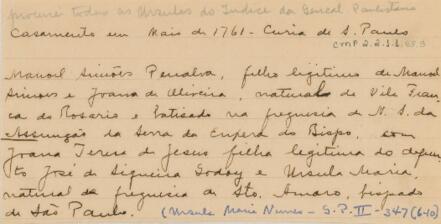 procurei todas as Ursulas do Indice da Geneal Paulistana
Casamento em Maio de 1761 - Curia de S. Paulo
CMP 2.2.1.1.85.3
Manoel Simões Penalva, filho legitimo de Manoel
Simoes e Joana de Oliveira, natural de Vila Fran
ca do Rosario e batisado na freguesia de N. S. da
Assunção da Serra da Enxera do Bispo, com
Joana Teresa de Jesus filha legitima do defun
to José de Siqueira Godoy e Ursula Maria,
natural da freguesia de Sto. Amaro, bispado
de São Paulo. (Ursula Maria Nunes - S.P. II - 347 (6-10)